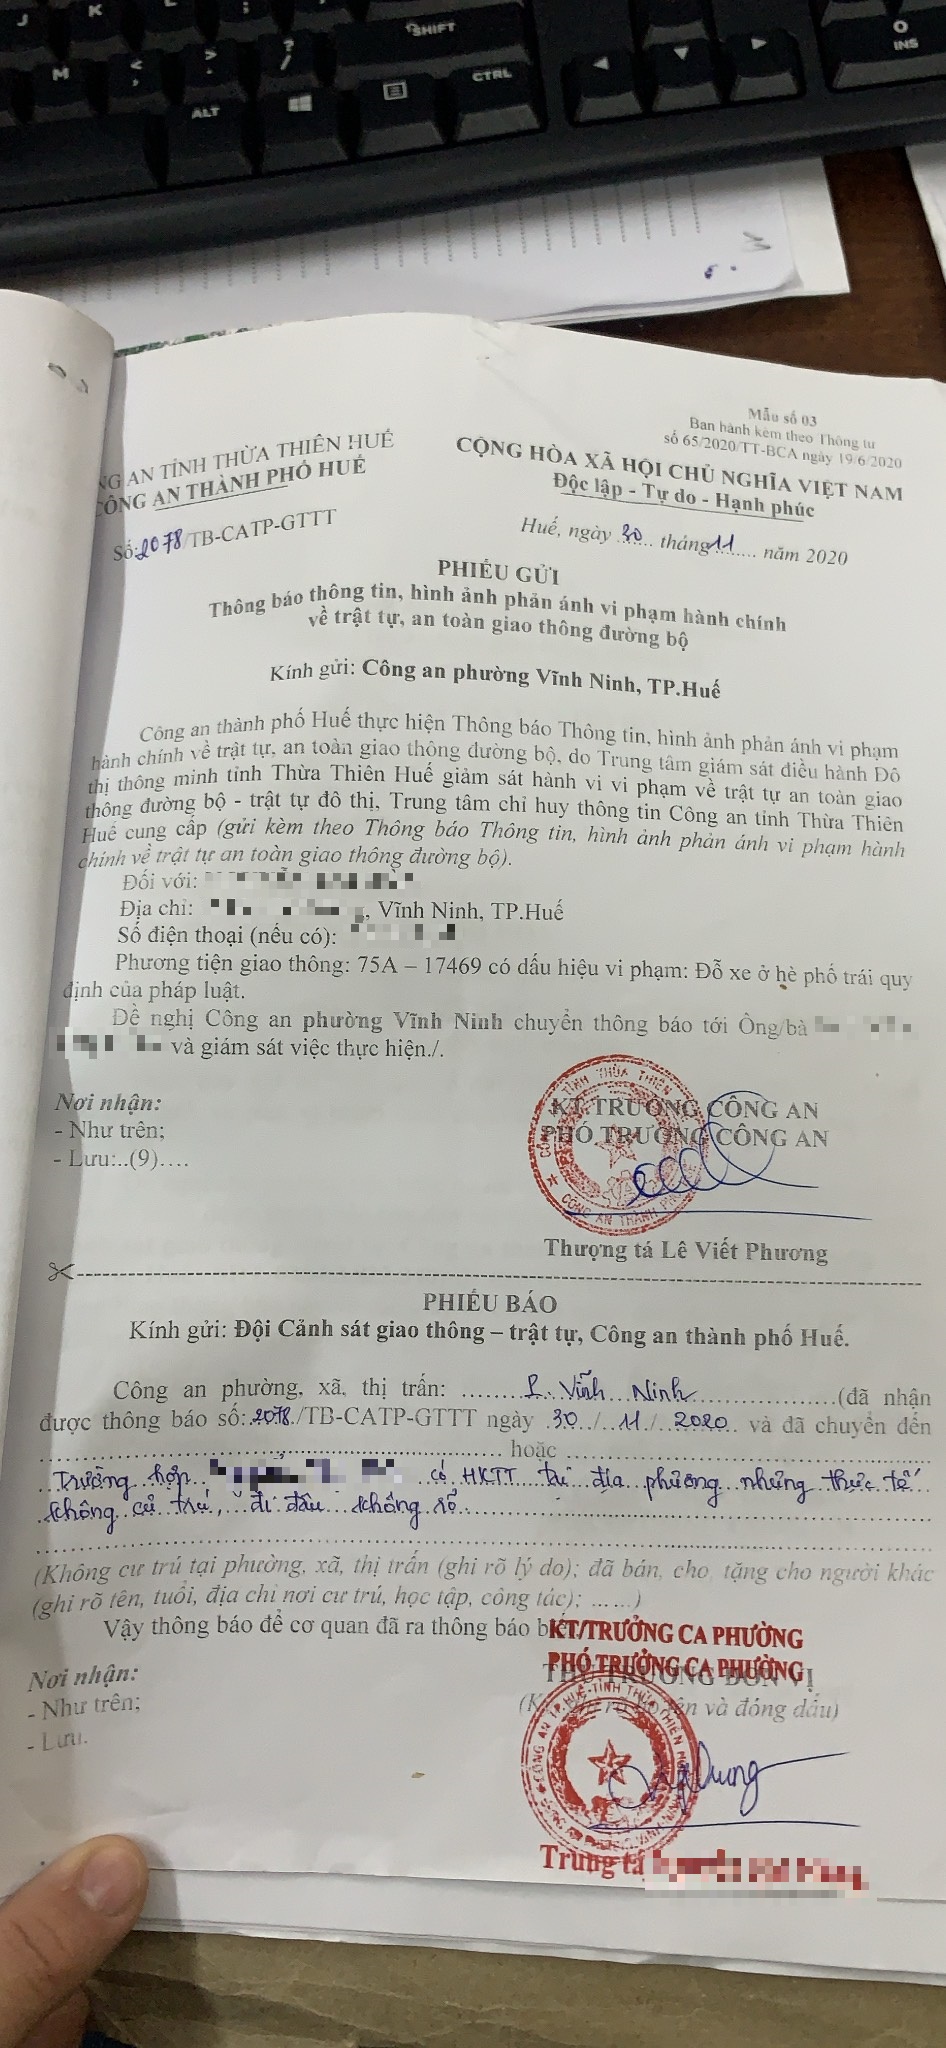 J K L ;
M < , > . ? / SHIFT
ALT CTRL
O INS
Mẫu số 03
Ban hành kèm theo Thông tư
số 65/2020/TT-BCA ngày 19/6/2020
NG AN TỈNH THỪA THIÊN HUẾ
CÔNG AN THÀNH PHỐ HUẾ
CỘNG HÒA XÃ HỘI CHỦ NGHĨA VIỆT NAM
Độc lập - Tự do - Hạnh phúc
Số:2078/TB-CATP-GTTT
Huế, ngày 30 tháng 11 năm 2020
PHIẾU GỬI
Thông báo thông tin, hình ảnh phản ánh vi phạm hành chính
về trật tự, an toàn giao thông đường bộ
Kính gửi: Công an phường Vĩnh Ninh, TP.Huế
Công an thành phố Huế thực hiện Thông báo Thông tin, hình ảnh phản ánh vi phạm
hành chính về trật tự, an toàn giao thông đường bộ, do Trung tâm giám sát điều hành Đô
thị thông minh tỉnh Thừa Thiên Huế giám sát hành vi vi phạm về trật tự an toàn giao
thông đường bộ - trật tự đô thị, Trung tâm chỉ huy thông tin Công an tỉnh Thừa Thiên
Huế cung cấp (gửi kèm theo Thông báo Thông tin, hình ảnh phản ánh vi phạm hành
chính về trật tự an toàn giao thông đường bộ).
Đối với:
Địa chỉ: , Vĩnh Ninh, TP.Huế
Số điện thoại (nếu có):
Phương tiện giao thông: 75A – 17469 có dấu hiệu vi phạm: Đỗ xe ở hè phố trái quy
định của pháp luật.
Đề nghị Công an phường Vĩnh Ninh chuyển thông báo tới Ông/bà
và giám sát việc thực hiện./.
Nơi nhận:
- Như trên;
- Lưu:..(9)....
KT.TRƯỞNG CÔNG AN
PHÓ TRƯỞNG CÔNG AN
Thượng tá Lê Viết Phương
PHIẾU BÁO
Kính gửi: Đội Cảnh sát giao thông – trật tự, Công an thành phố Huế.
Công an phường, xã, thị trấn: P. Vĩnh Ninh (đã nhận
được thông báo số: 2078./TB-CATP-GTTT ngày 30/11/2020 và đã chuyển đến
hoặc
Trường hợp có HKTT tại địa phương nhưng thực tế
không cư trú, đi đâu không rõ
(Không cư trú tại phường, xã, thị trấn (ghi rõ lý do); đã bán, cho, tặng cho người khác
(ghi rõ tên, tuổi, địa chỉ nơi cư trú, học tập, công tác); ......)
Vậy thông báo để cơ quan đã ra thông báo
KT/TRƯỞNG CA PHƯỜNG
PHÓ TRƯỞNG CA PHƯỜNG
THỦ TRƯỞNG ĐƠN VỊ
tên và đóng dấu)
Nơi nhận:
- Như trên;
- Lưu.
Trung tá